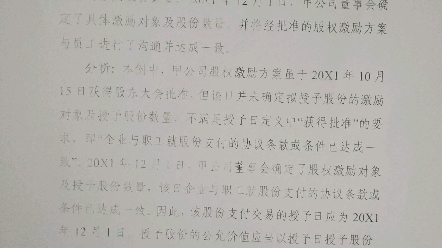 20X1 年 12 月 1 日,甲公司董事会确
定了具体激励对象及股份数量,并将经批准的股权激励方案
与员工进行了沟通并达成一致。
分析:本例中,甲公司股权激励方案虽于 20X1 年 10 月
15 日获得股东大会批准,但该日并未确定拟授予股份的激励
对象及授予股份数量,不满足授予日定义中“获得批准”的要
求,即“企业与职工就股份支付的协议条款或条件已达成一
致”。20X1 年 12 月 1 日,甲公司董事会确定了股权激励对象
及授予股份数量,该日企业与职工就股份支付的协议条款或
条件已达成一致。因此,该股份支付交易的授予日应为 20X1
年 12 月 1 日。授予股份的公允价值应当以授予日授予股份